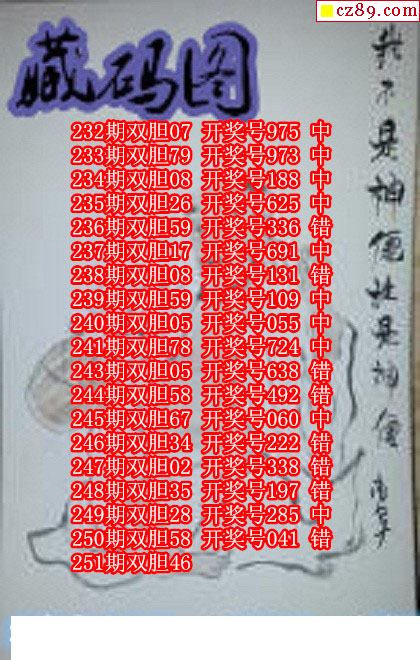 cz89.com
藏码图
232期双胆07 开奖号975 中
233期双胆79 开奖号973 中
234期双胆08 开奖号188 中
235期双胆26 开奖号625 中
236期双胆59 开奖号336 错
237期双胆17 开奖号691 中
238期双胆08 开奖号131 错
239期双胆59 开奖号109 中
240期双胆05 开奖号055 中
241期双胆78 开奖号724 中
243期双胆05 开奖号638 错
244期双胆58 开奖号492 错
245期双胆67 开奖号060 中
246期双胆34 开奖号222 错
247期双胆02 开奖号338 错
248期双胆35 开奖号197 错
249期双胆28 开奖号285 中
250期双胆58 开奖号041 错
251期双胆46
是神仙
是神仙